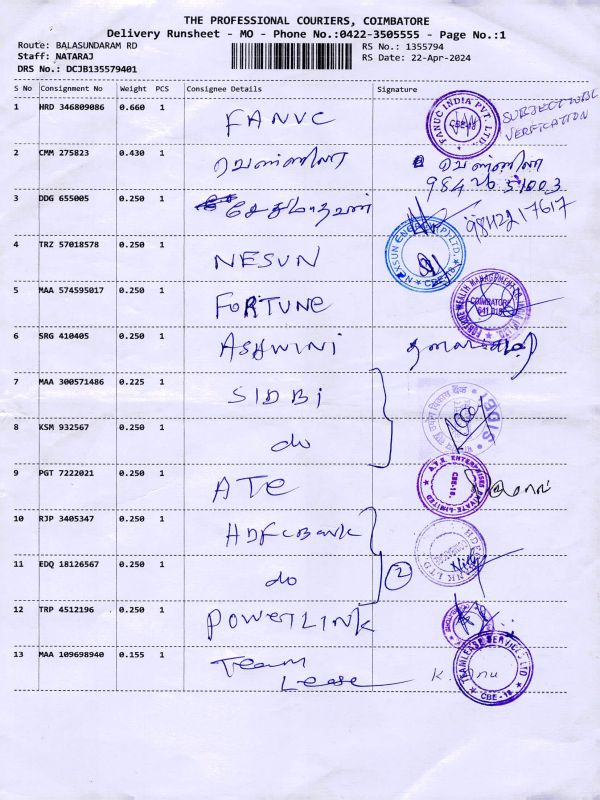 THE PROFESSIONAL COURIERS, COIMBATORE
Delivery Runsheet - MO - Phone No.:0422-3505555 - Page No.:1
Route: BALASUNDARAM RD
Staff: NATARAJ
DRS No.: DCJB135579401
RS No.: 1355794
RS Date: 22-Apr-2024
S No Consignment No Weight PCS Consignee Details Signature
1 HRD 346809086 0.660 1 FANUC FANUC INDIA PVT. LTD. CBE-18 SUBJECT
VERFICATION
2 CMM 275823 0.430 1 வெண்ணிலா வெண்ணிலா
98426 51003
3 DDG 655005 0.250 1 சேதுமாதவன் 9842217617
4 TRZ 57018578 0.250 1 NESUN CBE-18
5 MAA 574595017 0.250 1 FORTUNE FORTUNE WEALTH MANAGEMENT COIMBATORE 641 018
6 SRG 410405 0.250 1 ASHWINI
7 MAA 300571486 0.225 1 SIDBi
8 KSM 932567 0.250 1 do SIDBI
9 PGT 7222021 0.250 1 ATE A.T.E. ENTERPRISES PRIVATE LIMITED CBE-18.
10 RJP 3405347 0.250 1 HDFC Bank HDFC BANK LTD
11 EDQ 18126567 0.250 1 do 2
12 TRP 4512196 0.250 1 POWERLINK
13 MAA 109698940 0.155 1 Team
Lease TEAMLEASE SERVICES LTD CBE-18